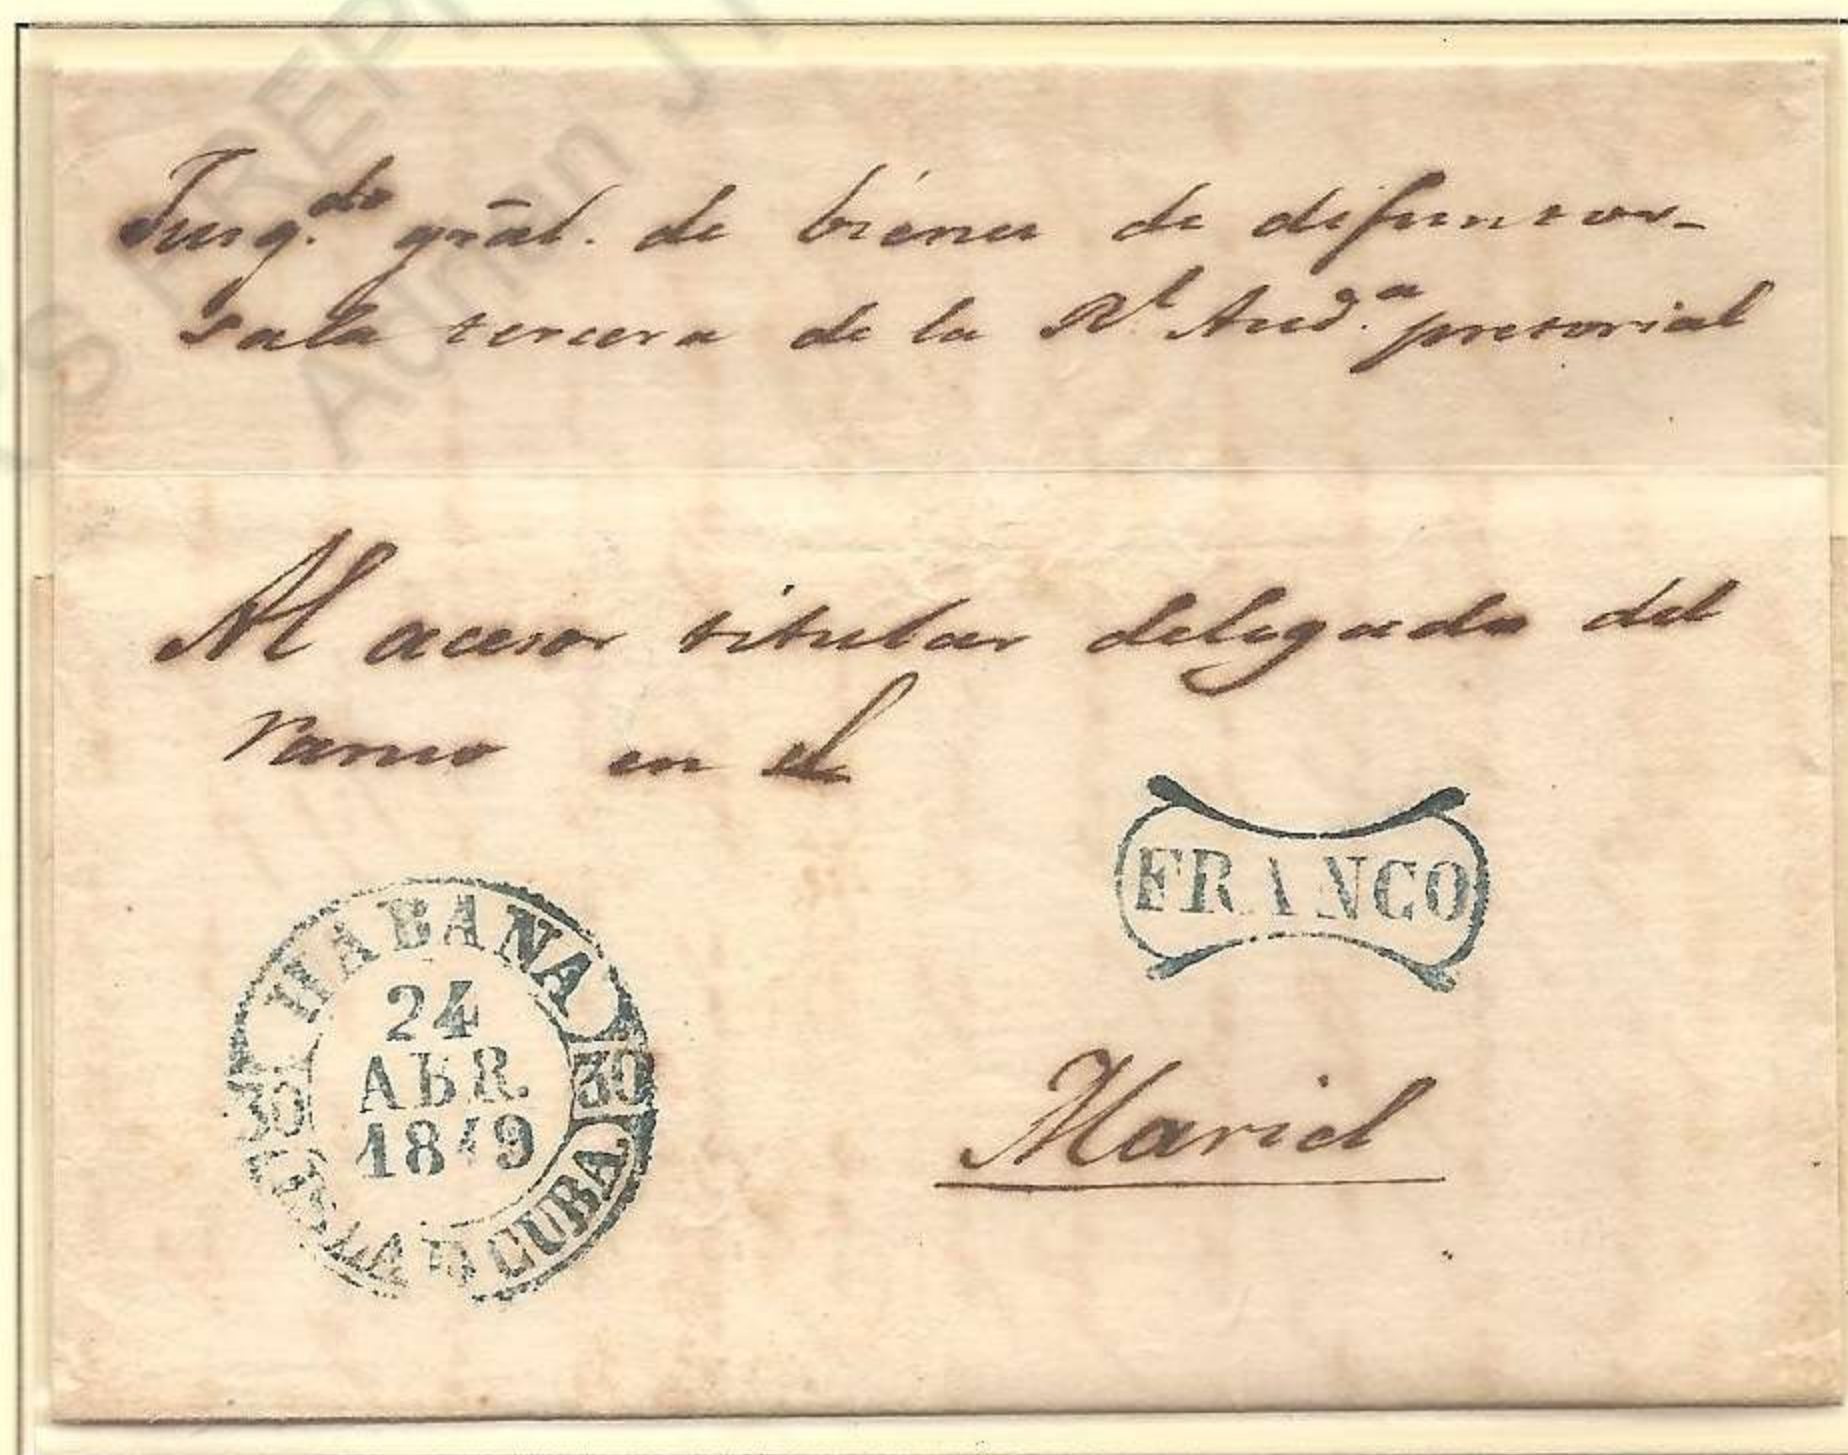 Juzg.do gral. de bienes de difuntos-
sala tercera de la Rl. Aud.a pretorial
Al acesor titular delegado del
ramo en el
FRANCO
HABANA
24
ABR.
1849
30 30
ISLA DE CUBA
Mariel